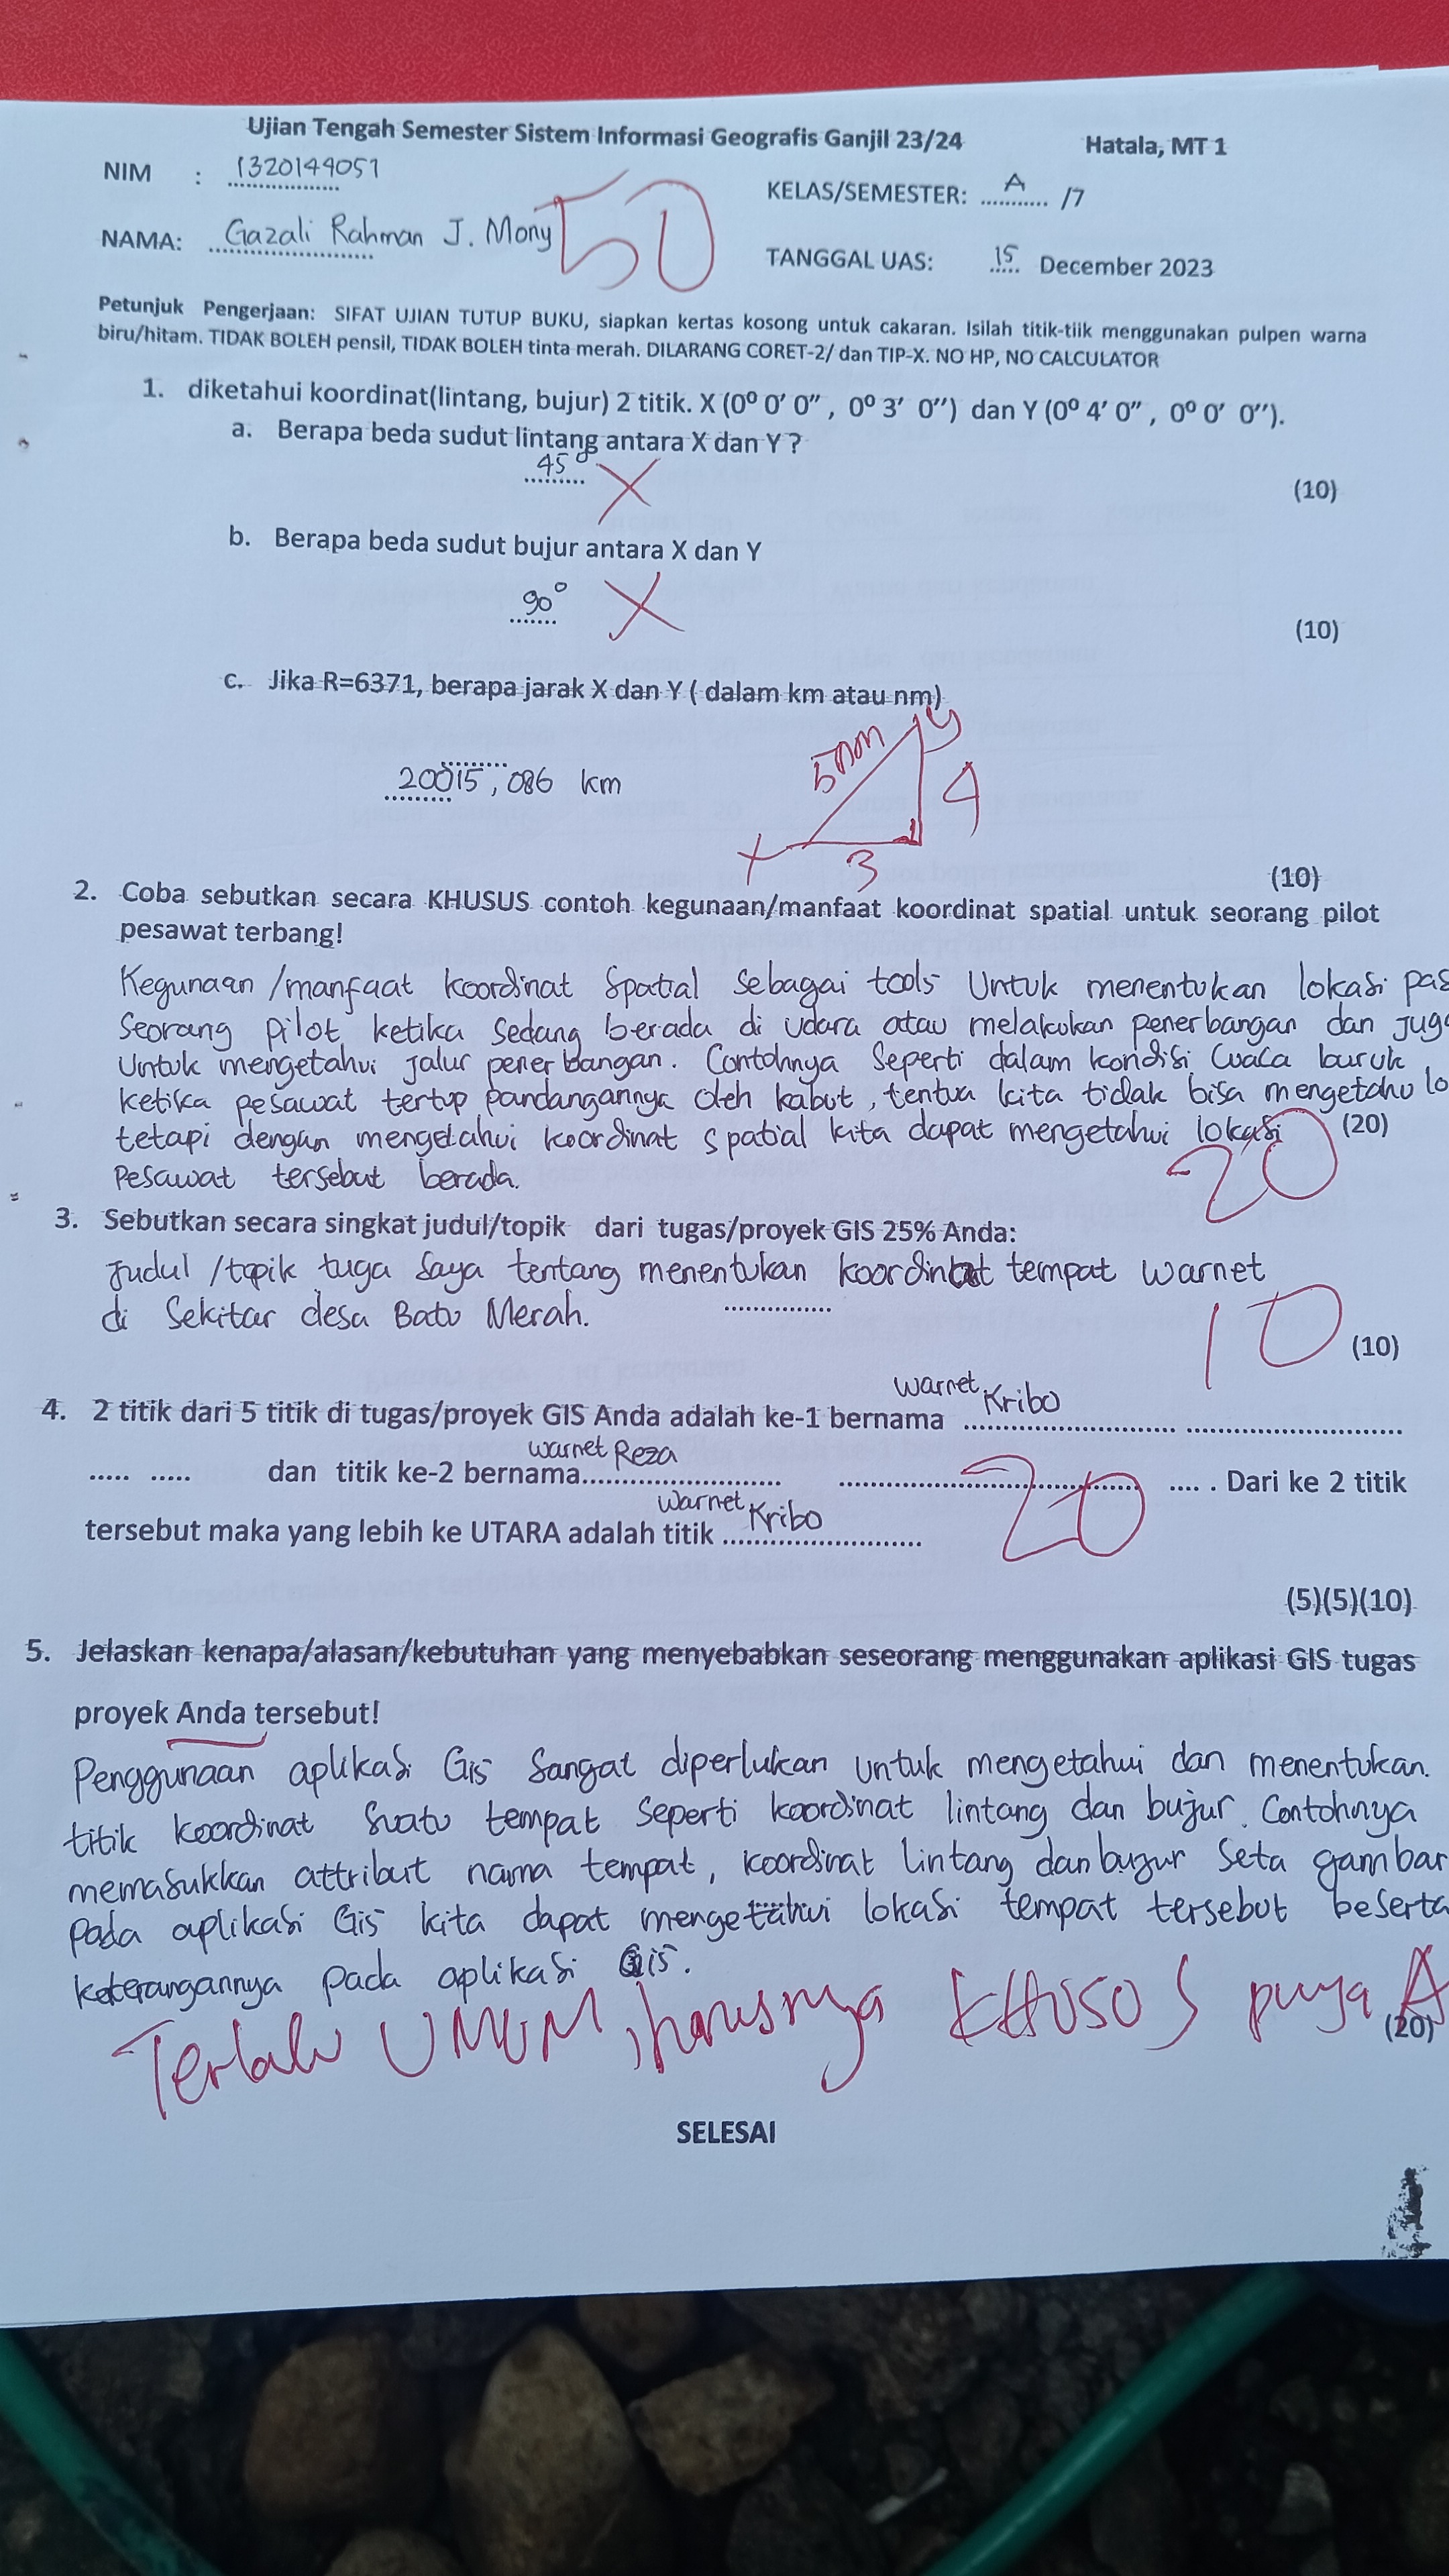 Ujian Tengah Semester Sistem Informasi Geografis Ganjil 23/24 Hatala, MT 1
NIM : 1320144051
KELAS/SEMESTER: A /7
NAMA: Gazali Rahman J. Mony 50
TANGGAL UAS: 15 December 2023
Petunjuk Pengerjaan: SIFAT UJIAN TUTUP BUKU, siapkan kertas kosong untuk cakaran. Isilah titik-tiik menggunakan pulpen warna
biru/hitam. TIDAK BOLEH pensil, TIDAK BOLEH tinta merah. DILARANG CORET-2/ dan TIP-X. NO HP, NO CALCULATOR
1. diketahui koordinat(lintang, bujur) 2 titik. X (0⁰ 0' 0'' , 0⁰ 3' 0'') dan Y (0⁰ 4' 0'' , 0⁰ 0' 0'').
a. Berapa beda sudut lintang antara X dan Y ?
45° X
(10)
b. Berapa beda sudut bujur antara X dan Y
90° X
(10)
c. Jika R=6371, berapa jarak X dan Y ( dalam km atau nm)
20015,086 km
5nm y
4
x 3
(10)
2. Coba sebutkan secara KHUSUS contoh kegunaan/manfaat koordinat spatial untuk seorang pilot
pesawat terbang!
Kegunaan /manfaat koordinat Spatial sebagai tools Untuk menentukan lokasi pas
Seorang pilot ketika sedang berada di udara atau melakukan penerbangan dan jug
Untuk mengetahui jalur penerbangan. Contohnya Seperti dalam kondisi Cuaca buruk
ketika pesawat tertup pandangannya oleh kabut, tentua kita tidak bisa mengetahu lo
tetapi dengan mengetahui koordinat spatial kita dapat mengetahui lokasi (20)
Pesawat tersebut berada. 20
3. Sebutkan secara singkat judul/topik dari tugas/proyek GIS 25% Anda:
Judul /topik tuga Saya tentang menentukan koordinat tempat warnet
di Sekitar desa Batu Merah.
10 (10)
4. 2 titik dari 5 titik di tugas/proyek GIS Anda adalah ke-1 bernama warnet Kribo
..... ..... dan titik ke-2 bernama warnet Reza .... . Dari ke 2 titik
tersebut maka yang lebih ke UTARA adalah titik warnet Kribo
20
(5)(5)(10)
5. Jelaskan kenapa/alasan/kebutuhan yang menyebabkan seseorang menggunakan aplikasi GIS tugas
proyek Anda tersebut!
Penggunaan aplikasi Gis Sangat diperlukan Untuk mengetahui dan menentukan.
titik koordinat Suatu tempat Seperti koordinat lintang dan bujur. Contohnya
memasukkan attribut nama tempat, koordinat lintang dan bujur Seta gambar
Pada aplikasi Gis kita dapat mengetahui lokasi tempat tersebut beserta
keterangannya pada aplikasi Gis.
Terlalu UMUM, harusnya KHUSUS punya A
(20)
SELESAI